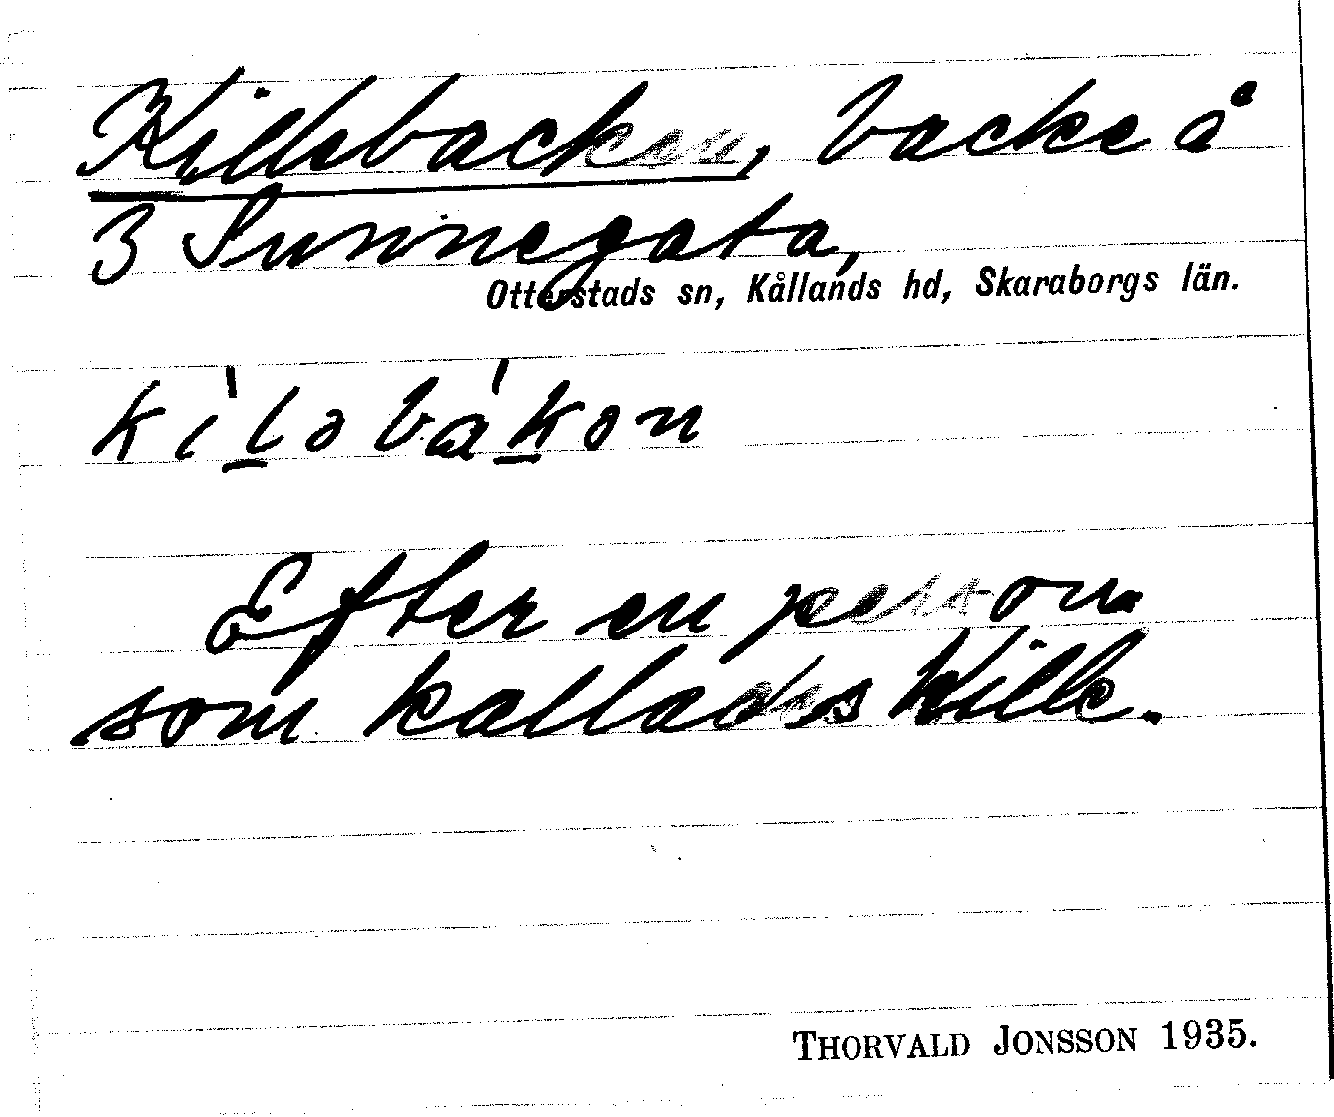 Killebacken, backe å
3 Sunnegata,
Otterstads sn, Kållands hd, Skaraborgs län.
kìləbákən
Efter en person
som kallades Kille.
THORVALD JONSSON 1935.